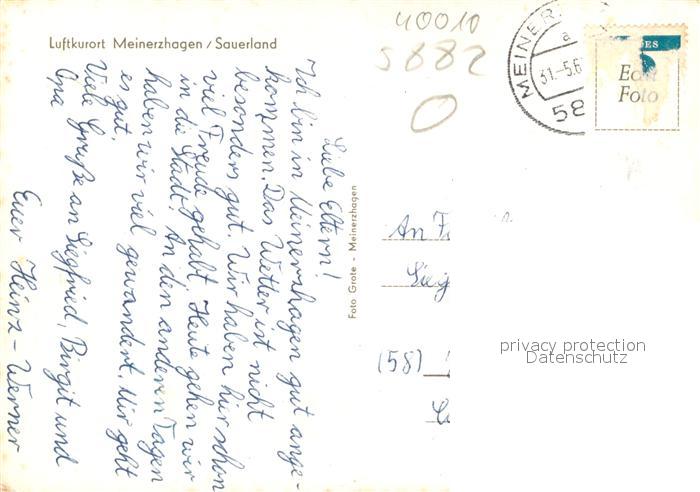 Luftkurort Meinerzhagen / Sauerland
40010
5882
0
MEINER
a
31.-5.6
58
ES
Echt
Foto
Liebe Eltern!
Ich bin in Meinerzhagen gut ange-
kommen. Das Wetter ist nicht
besonders gut. Wir haben hier schon
viel Freude gehabt, Heute gehen wir
in die Stadt. An den anderen Tagen
haben wir viel gewandert. Mir geht
es gut.
Viele Grüße an Siegfried, Birgit und
Opa
Euer Heinz-Werner
Foto Grote - Meinerzhagen
An F
Sieg
(58)
privacy protection
Datenschutz